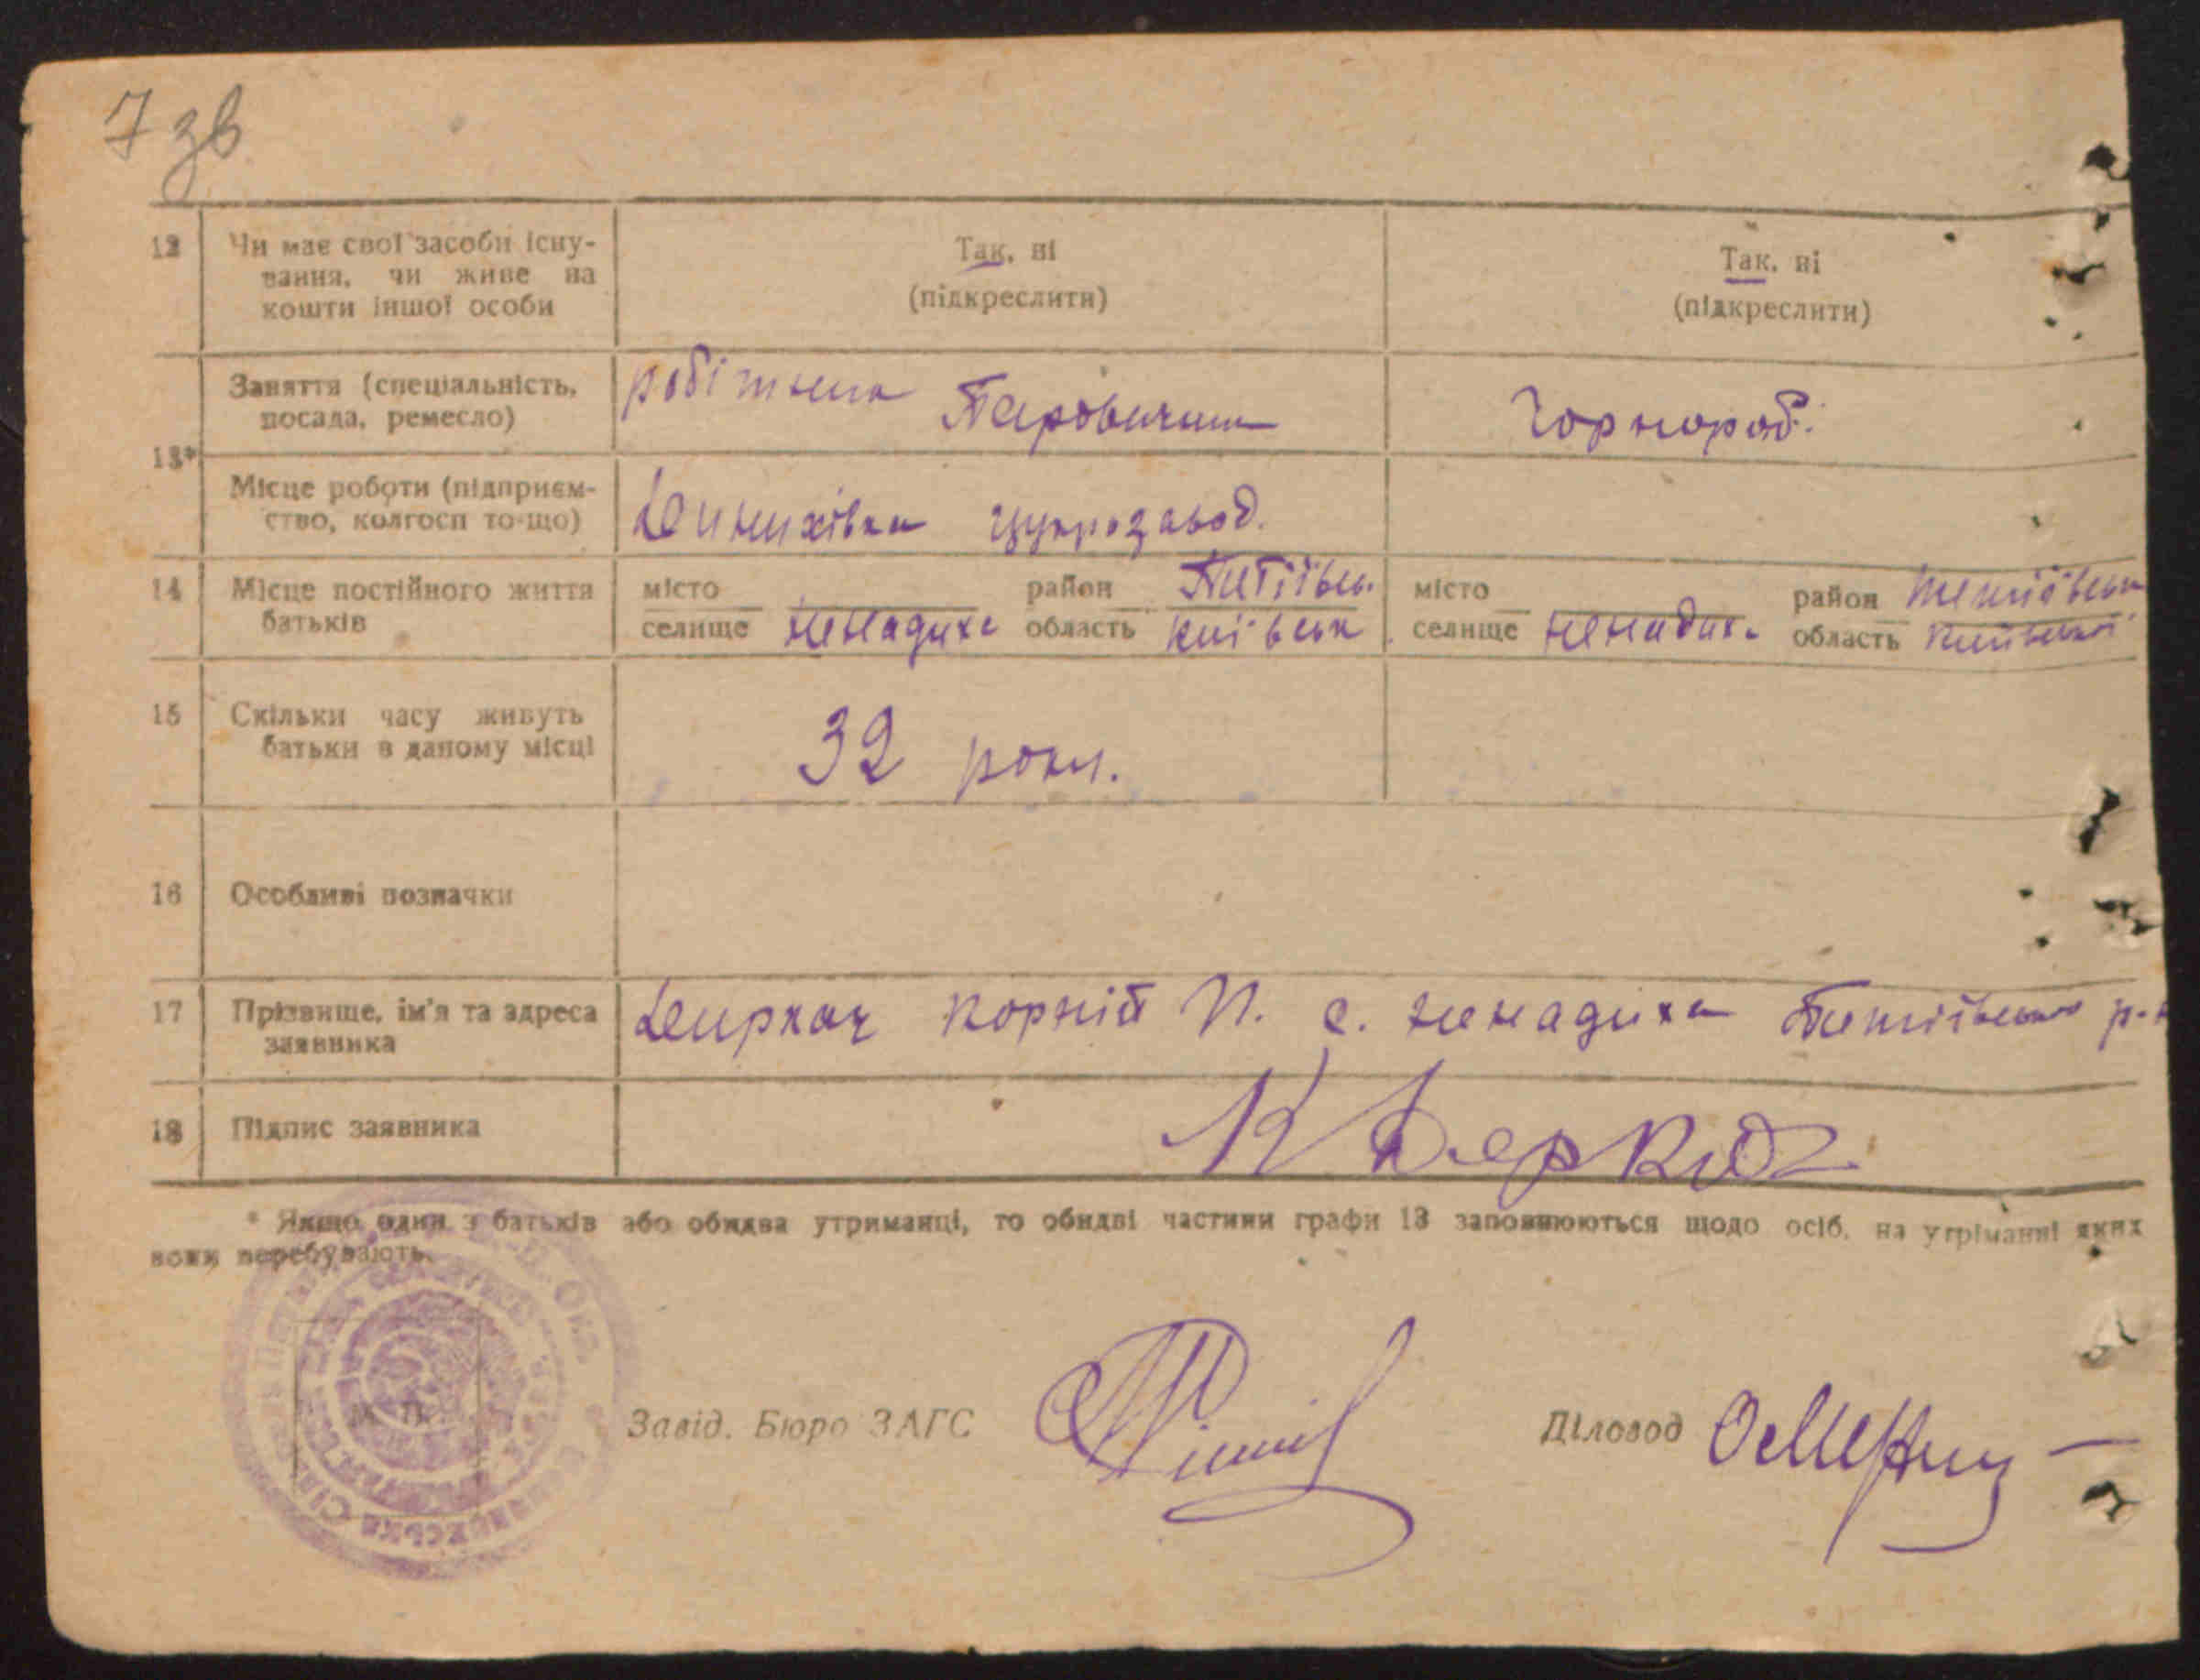 7 зв
12 Чи має свої засоби існу-
вання, чи живе на
кошти іншої особи
Так, ні
(підкреслити)
Так, ні
(підкреслити)
13*
Заняття (спеціальність,
посада, ремесло)
Чорнороб.
Місце роботи (підприєм-
ство, колгосп то-що)
цукрозавод.
14 Місце постійного життя
батьків
місто
селище Ненадиха
район Тетіївськ.
область Київськ.
місто
селище Ненадиха
район Тетіївськ
область Київської
15 Скільки часу живуть
батьки в даному місці
32 роки.
16 Особливі позначки
17 Прізвище, ім'я та адреса
заявника
Деркач Корній П. с. Ненадиха Тетіївського р-н
18 Підпис заявника
К Деркач
* Якщо один з батьків або обидва утриманці, то обидві частини графи 13 заповнюються щодо осіб, на утріманні яких
вони перебувають.
М. П.
Завід. Бюро ЗАГС
Діловод